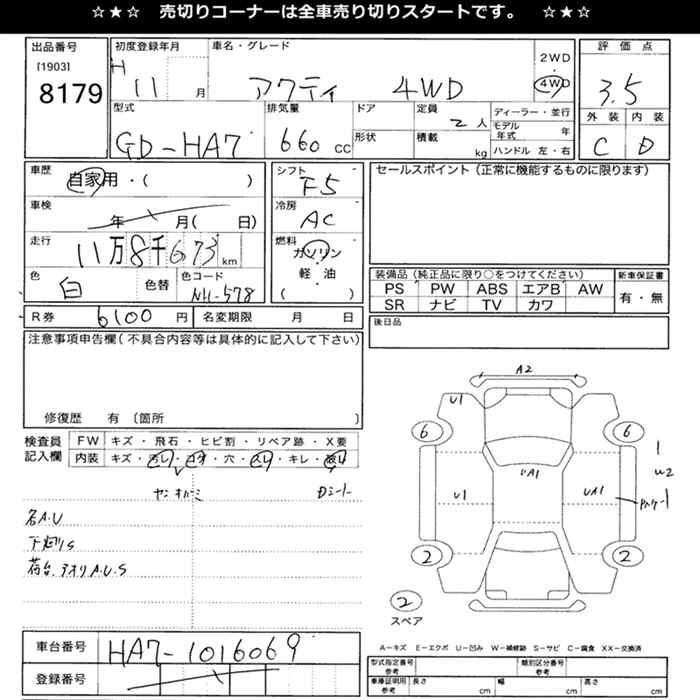 ☆★☆ 売切りコーナーは全車売り切りスタートです。 ☆★☆
出品番号
[1903]
8179
初度登録年月
H 11 月
車名・グレード
アクティ 4WD
2WD
4WD
評価点
3.5
外装 内装
C D
型式
GD-HA7
排気量
660 cc
ドア
形状
定員
2 人
積載
kg
ディーラー・並行
モデル年式 年
ハンドル 左・右
車歴
自家用・( )
車検
年 月( 日)
走行
11万8千673 km
色
白
色替
色コード
NH-578
シフト
F5
冷房
AC
燃料
ガソリン
軽・油
( )
セールスポイント(正常に機能するものに限ります)
装備品(純正品に限り○をつけてください)
PS PW ABS エアB AW
SR ナビ TV カワ
新車保証書
有・無
R券 6100 円
名変期限 月 日
後日品
注意事項申告欄(不具合内容等は具体的に記入して下さい)
修復歴 有 〔箇所 〕
検査員記入欄
FW キズ・飛石・ヒビ割・リペア跡・X要
内装 キズ・汚レ・コゲ・穴・スレ・キレ・
名A.U
下廻りS
荷台.アオリA.U.S
A2
U1
6
6
UA1
U1
UA1
1
U2
2
2
2
スペア
車台番号
HA7-1016069
登録番号
A-キズ E-エクボ U-凹み W-補修跡 S-サビ C-腐食 XX-交換済
型式指定番号
参考
類別区分番号
参考
車庫証明用
参考
長さ cm
幅 cm
高さ cm